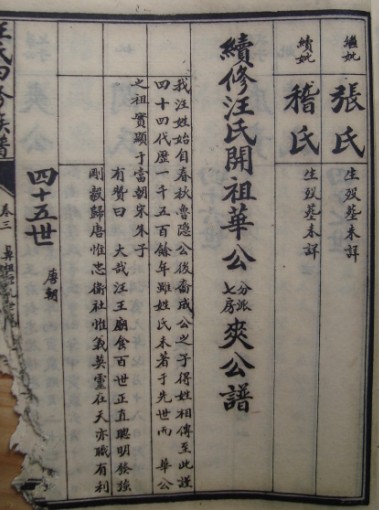 繼妣 張氏 生殁墓未詳
續妣 嵇氏 生殁墓未詳
續修汪氏開祖華公分派七房爽公譜
我汪姓始自春秋魯隐公後裔成公之子得姓相傳至此謹
四十四代歴一千五百餘年雖姓氏未著于先世而 華公
之祖實顯于當朝宋朱子
有贊曰 大哉汪王廟食百世正直聰明發強
剛毅歸唐惟忠衛社惟氣英靈在天亦職有利
四十五世 唐朝
汪氏四修族譜
卷三